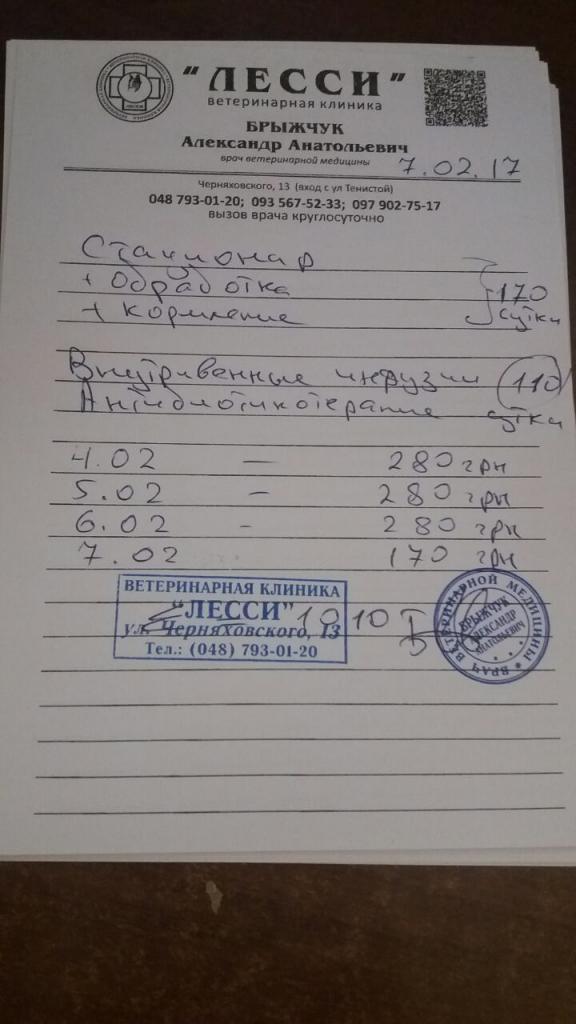 "ЛЕССИ"
ветеринарная клиника
БРЫЖЧУК
Александр Анатольевич
врач ветеринарной медицины
7.02.17
Черняховского, 13 (вход с ул Тенистой)
048 793-01-20; 093 567-52-33; 097 902-75-17
вызов врача круглосуточно
Стационар
+ Обработка 170
+ Кормление сутки
Внутривенные инфузии 110
Антибиотикотерапие сутки
4.02 — 280 грн
5.02 – 280 грн
6.02 - 280 грн
7.02 170 грн
ВЕТЕРИНАРНАЯ КЛИНИКА
"ЛЕССИ" 1010
ул. Черняховского, 13
Тел.: (048) 793-01-20
ВРАЧ ВЕТЕРИНАРНОЙ МЕДИЦИНЫ
БРЫЖЧУК
АЛЕКСАНДР
АНАТОЛЬЕВИЧ